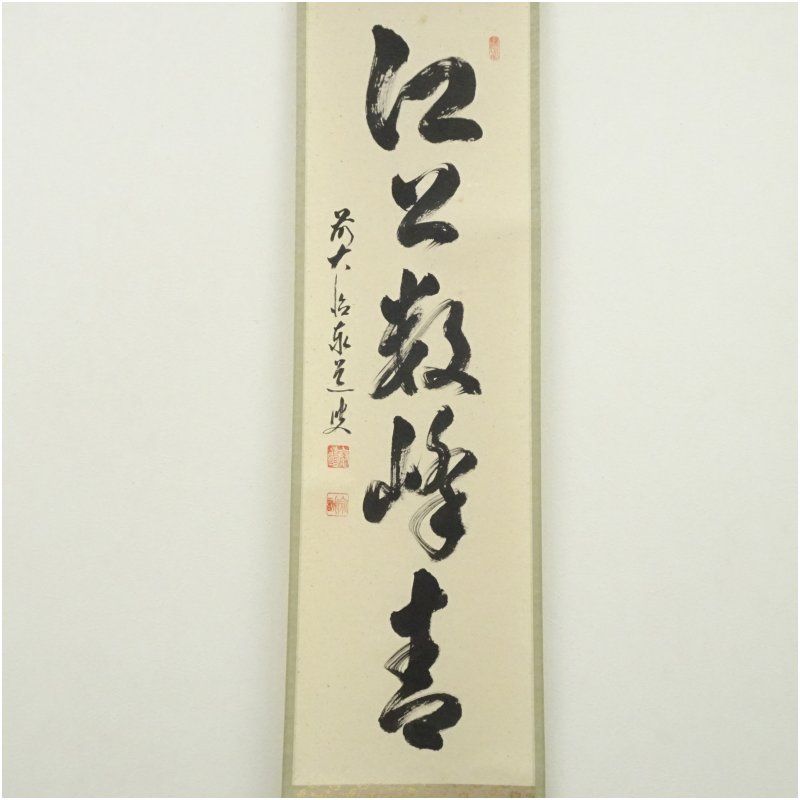 江上数峰青
前大徳泰道叟